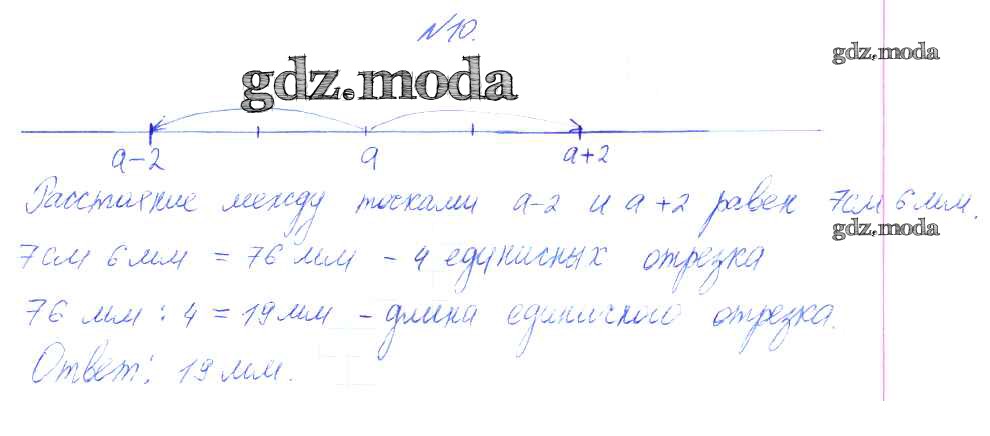 №10.
gdz.moda
gdz.moda
a-2 a a+2
Расстояние между точками a-2 и a+2 равен 7см 6мм.
gdz.moda
7см 6мм = 76 мм - 4 единичных отрезка
76 мм : 4 = 19мм - длина единичного отрезка.
Ответ: 19 мм.